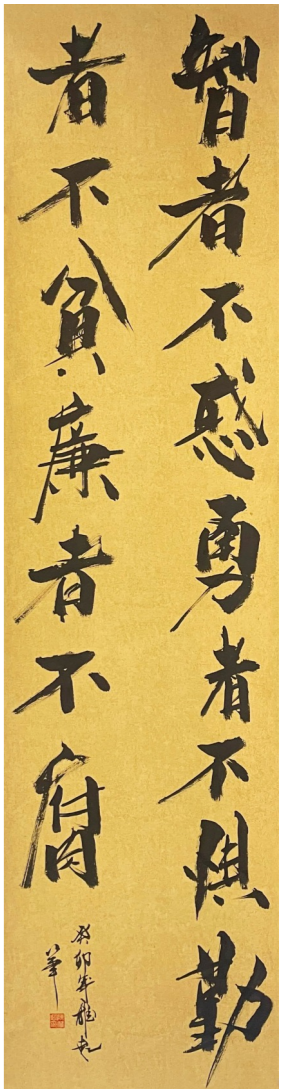 智者不惑勇者不惧勤
者不貧廉者不腐
癸卯年龍
筆